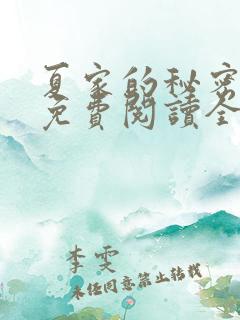 夏家的秘密
免費閱讀全
李雯
未经同意禁止转载